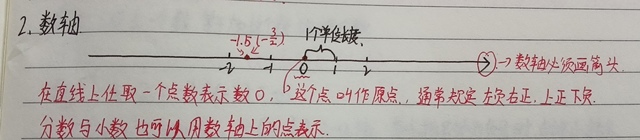 2. 数轴
-1.5 (-3/2) 1个单位长度.
-2 -1 0 1 2 → 数轴必须画箭头.
在直线上任取一个点数表示数0, 这个点叫作原点, 通常规定左负右正, 上正下负.
分数与小数也可以用数轴上的点表示.